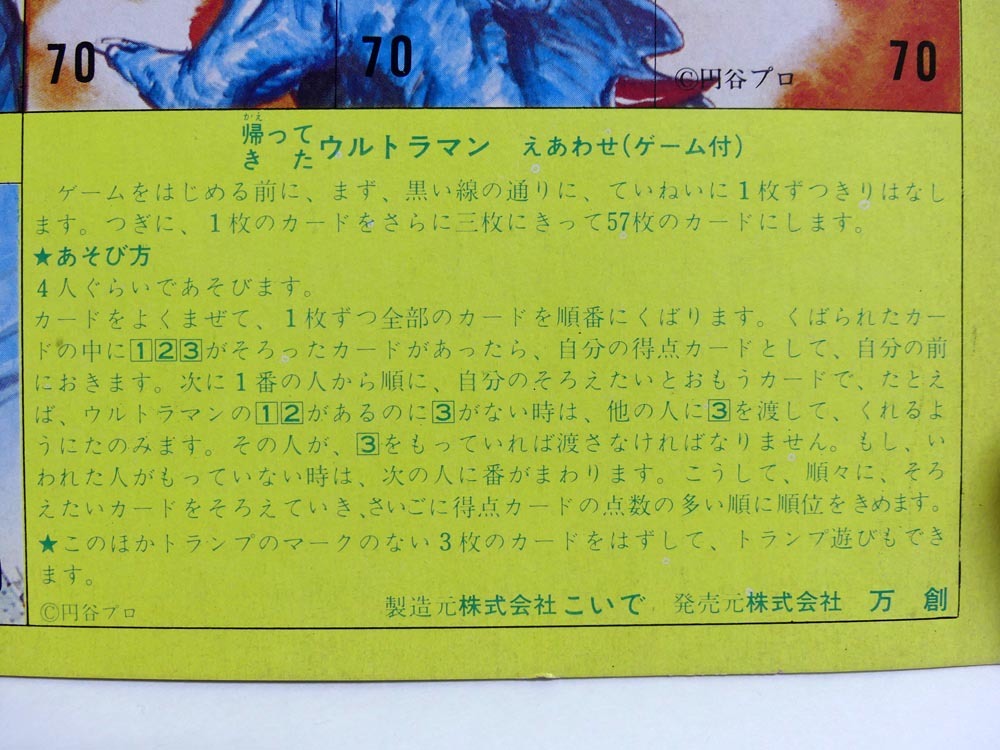 70
70
70
©円谷プロ
かえ
帰って
きた
ウルトラマン えあわせ(ゲーム付)
ゲームをはじめる前に、まず、黒い線の通りに、ていねいに1枚ずつきりはなし
ます。つぎに、1枚のカードをさらに三枚にきって57枚のカードにします。
★あそび方
4人ぐらいであそびます。
カードをよくまぜて、1枚ずつ全部のカードを順番にくばります。くばられたカー
ドの中に123がそろったカードがあったら、自分の得点カードとして、自分の前
におきます。次に1番の人から順に、自分のそろえたいとおもうカードで、たとえ
ば、ウルトラマンの12があるのに3がない時は、他の人に3を渡して、くれるよ
うにたのみます。その人が、3をもっていれば渡さなければなりません。もし、い
われた人がもっていない時は、次の人に番がまわります。こうして、順々に、そろ
えたいカードをそろえていき、さいごに得点カードの点数の多い順に順位をきめます。
★このほかトランプのマークのない3枚のカードをはずして、トランプ遊びもでき
ます。
©円谷プロ 製造元株式会社こいで 発売元株式会社 万創